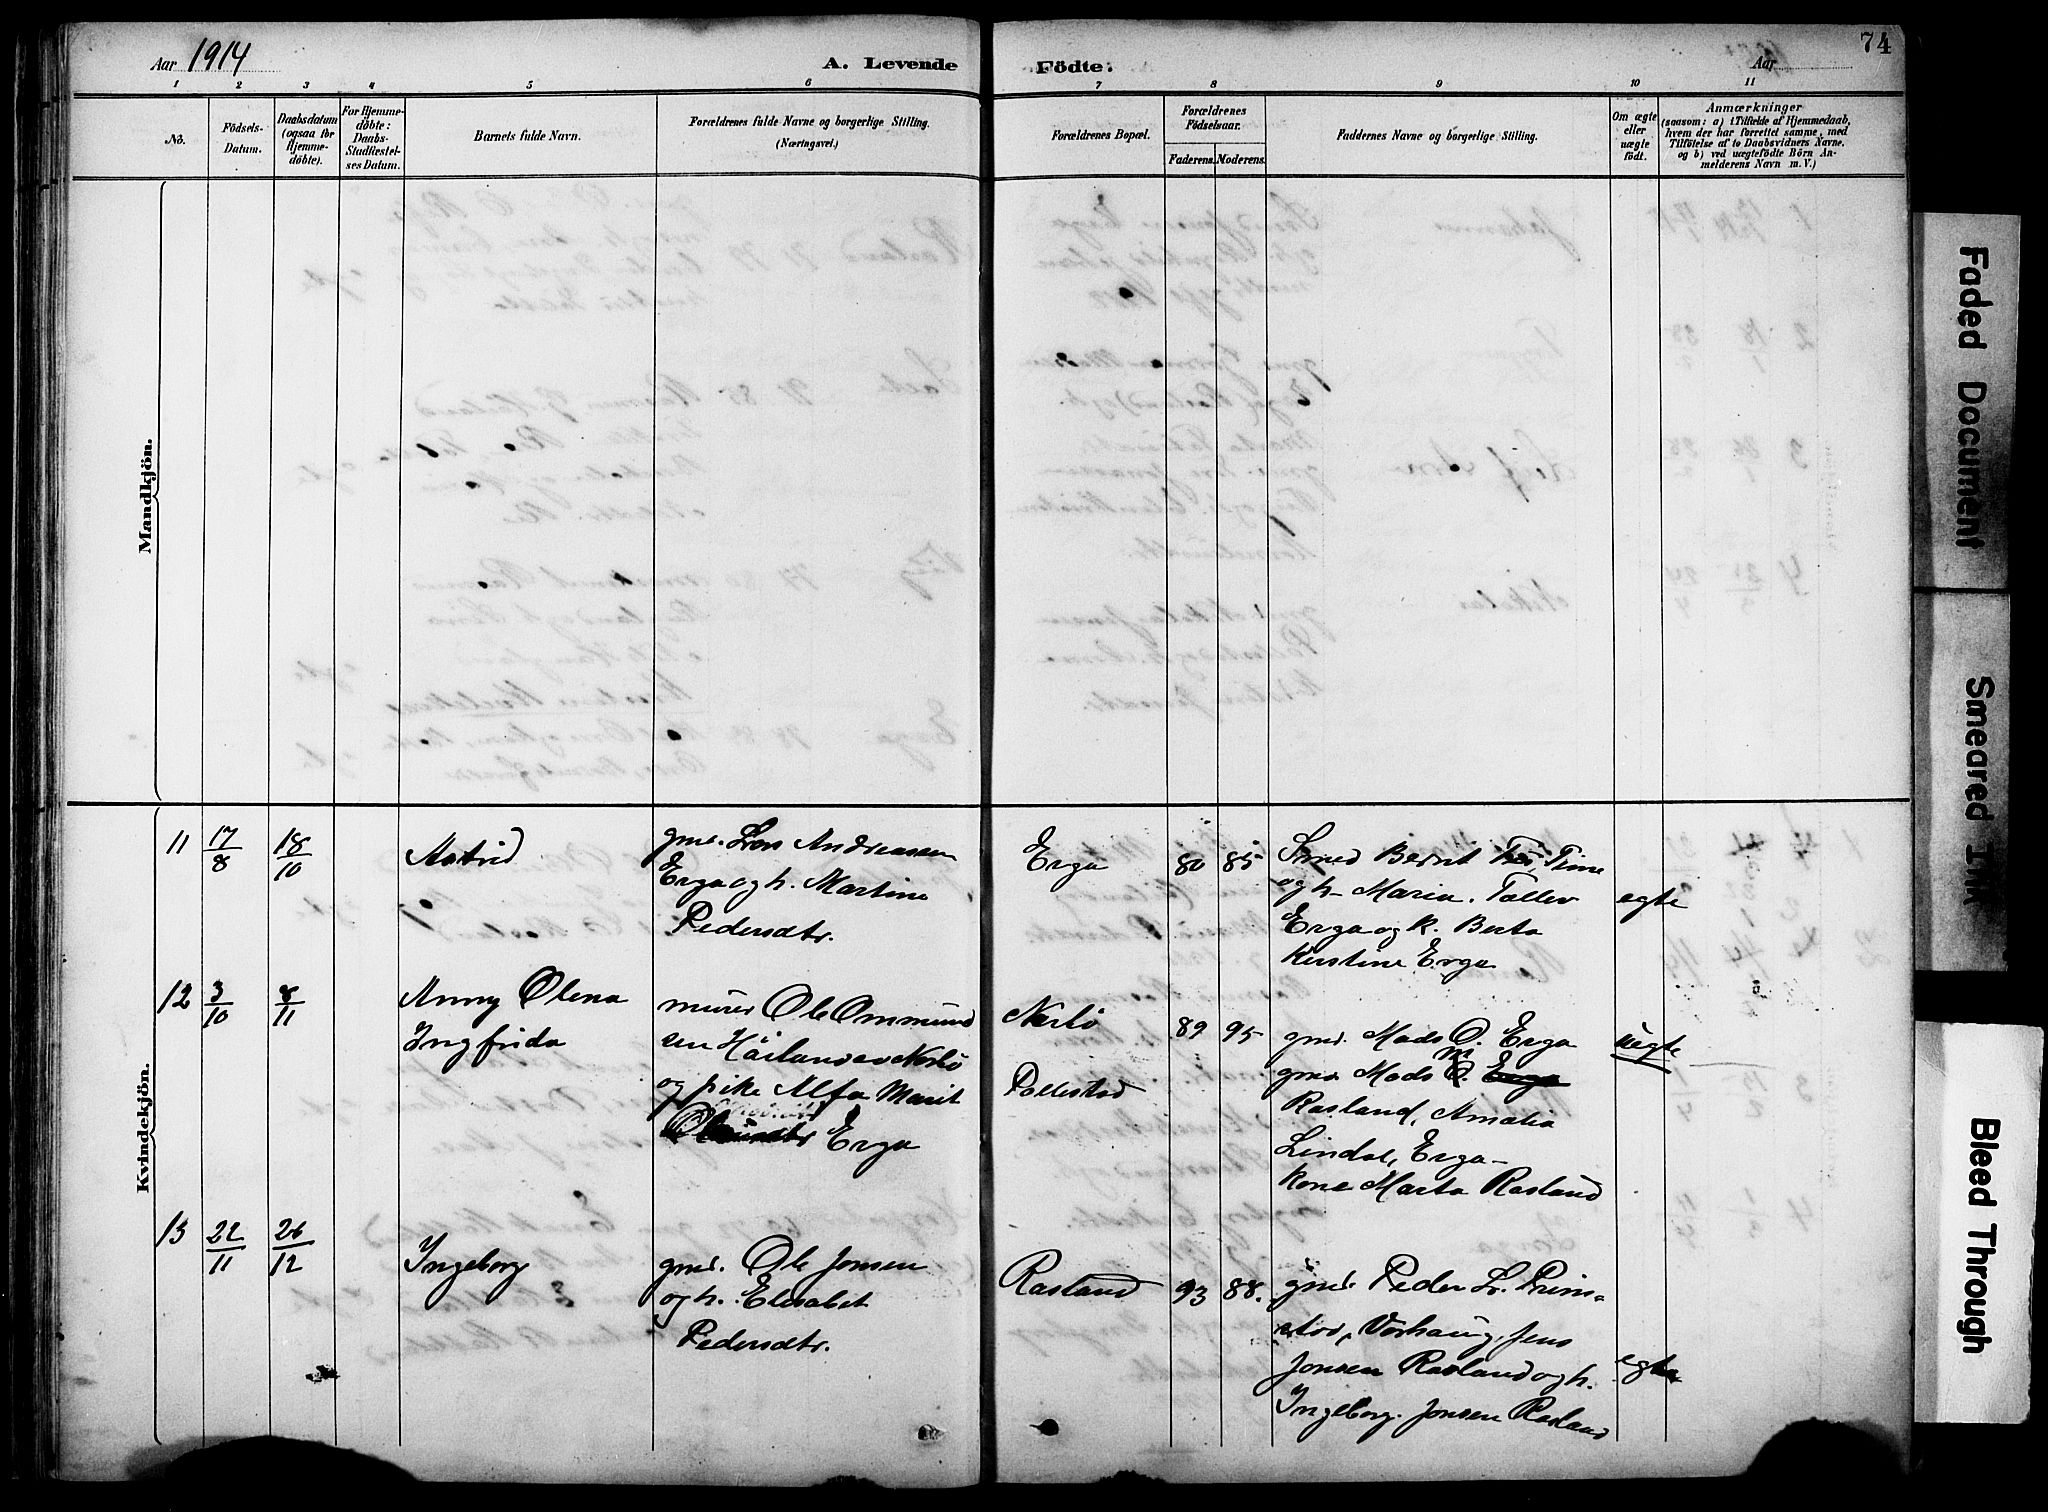 Aar 1914
A. Levende Födte.
74
Aar
1 2 3 4 5 6 7 8 9 10 11
No.
Födsels-Datum.
Daabsdatum (ogsaa for Hjemme-döbte).
For Hjemme-döbte: Daabs-Stadfæstel-ses Datum.
Barnets fulde Navn.
Forældrenes fulde Navne og borgerlige Stilling.
(Næringsvei.)
Forældrenes Bopæl.
Forældrenes Födselsaar.
Faderens. Moderens.
Faddernes Navne og borgerlige Stilling.
Om ægte eller uægte födt.
Anmærkninger
(saasom: a) i Tilfælde af Hjemmedaab,
hvem der har forrettet samme, med
Tilföielse af to Daabsvidners Navne.
og b) ved uægtefödte Börn An-
melderens Navn m. V.)
Mandkjön.
Kvindekjön.
11 17/8 18/10 Astrid
gmd. Lars Andreassen
Erga og h. Martine
Pedersdtr.
Erga 80 85
Smed Bernt Time
og h. Maria. Tollev
Erga og k. Berta
Kirstine Erga
egte
12 3/10 8/11 Anny Olena
Ingfrida
murer Ole Ommund
sen Höiland av Nerbö
og pike Alfa Marit
Erga
Nerbö
Pollestad
89 95
gmd. Mads O. Erga
gmd. Mads M.
Rosland, Amalia
Lindal, Erga-
kone Marta Rosland
uegte
13 22/11 26/12 Ingeborg
gmd. Ole Jonsen
og h. Elisabet
Pedersdtr.
Rosland 93 88.
gmd. Peder L. Prims-
stad, Varhaug, Jens
Jonsen Rosland og h.
Ingeborg Jonsen Rosland
egte
Faded Document
Smeared Ink
Bleed Through